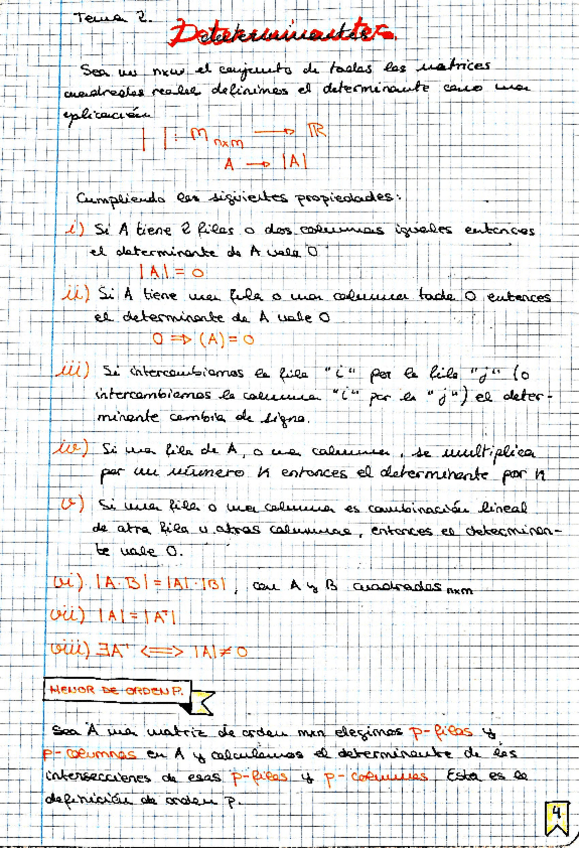 Tema 2.
Determinantes.
Sea un nxm el conjunto de todas las matrices
cuadradas reales definimos el determinante como una
aplicación
| | : M nxm → ℝ
A → |A|
Cumpliendo las siguientes propiedades:
i) Si A tiene 2 filas o dos columnas iguales entonces
el determinante de A vale 0
|A| = 0
ii) Si A tiene una fila o una columna toda 0 entonces
el determinante de A vale 0
0 => (A) = 0
iii) Si intercambiamos la fila "i" por la fila "j" (o
intercambiamos la columna "i" por la "j") el deter-
minante cambia de signo.
iv) Si una fila de A, o una columna, se multiplica
por un número K entonces el determinante por K
v) Si una fila o una columna es combinación lineal
de otra fila u otras columnas, entonces el determinan-
te vale 0.
vi) |A·B| = |A|·|B|, con A y B cuadradas nxm
vii) |A| = |Aᵗ|
viii) ∃A⁻¹ <=> |A| ≠ 0
MENOR DE ORDEN P.
Sea A una matriz de orden mxn elegimos p-filas y
p-columnas en A y calculamos el determinante de las
intersecciones de esas p-filas y p-columnas. Esta es la
definición de orden p.
4